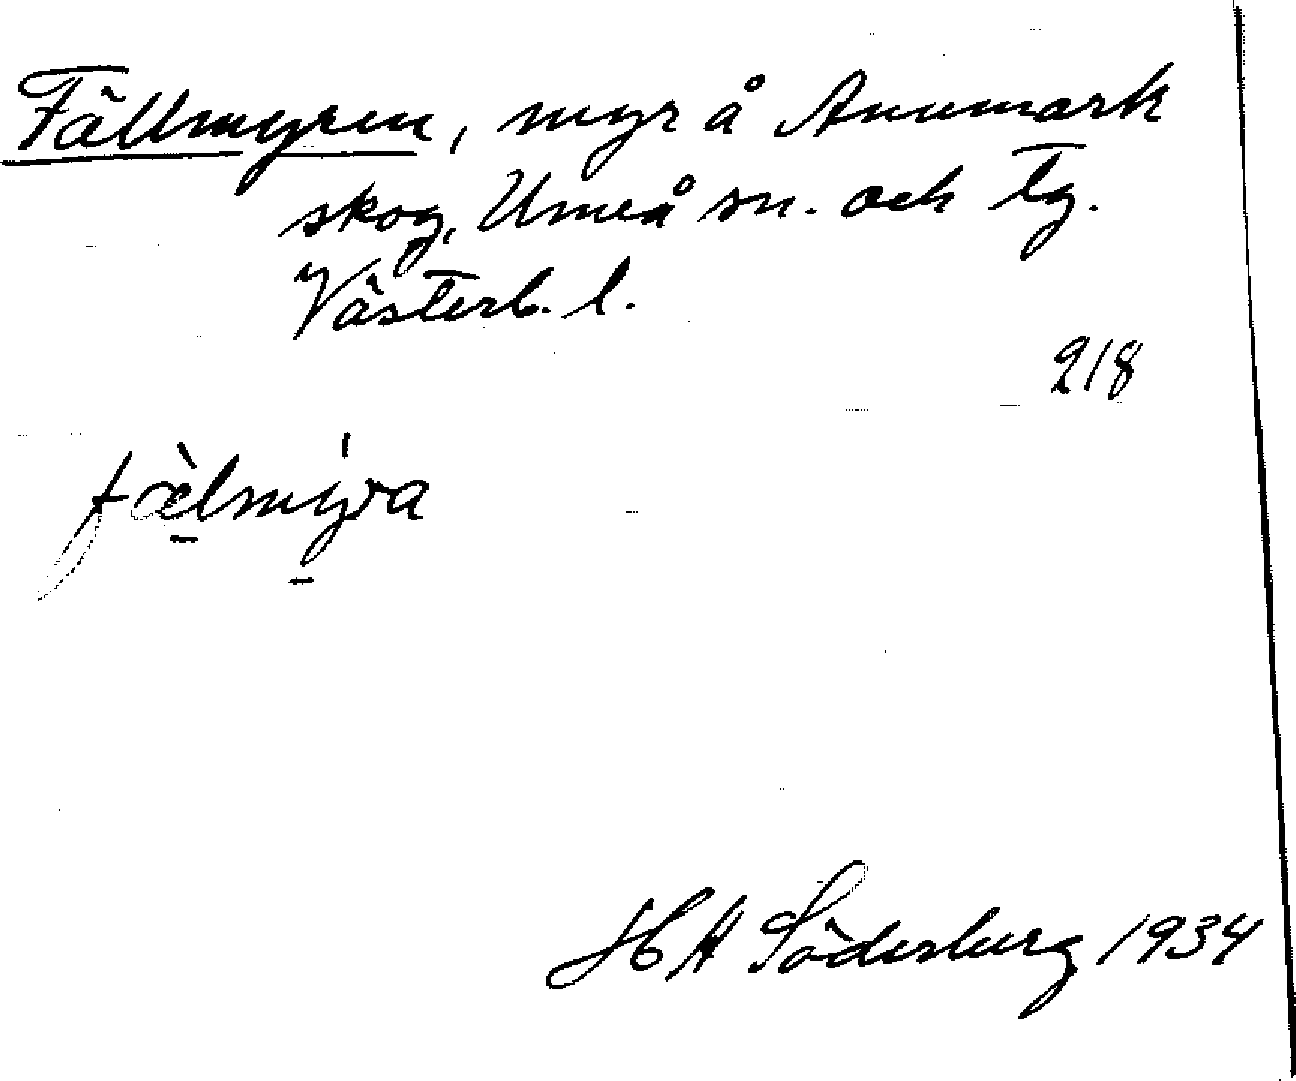 Fällmyren, myr å Anumark
skog, Umeå sn. och tg.
Västerb. l.
218
fæ̀lmýra
H A Söderberg 1934